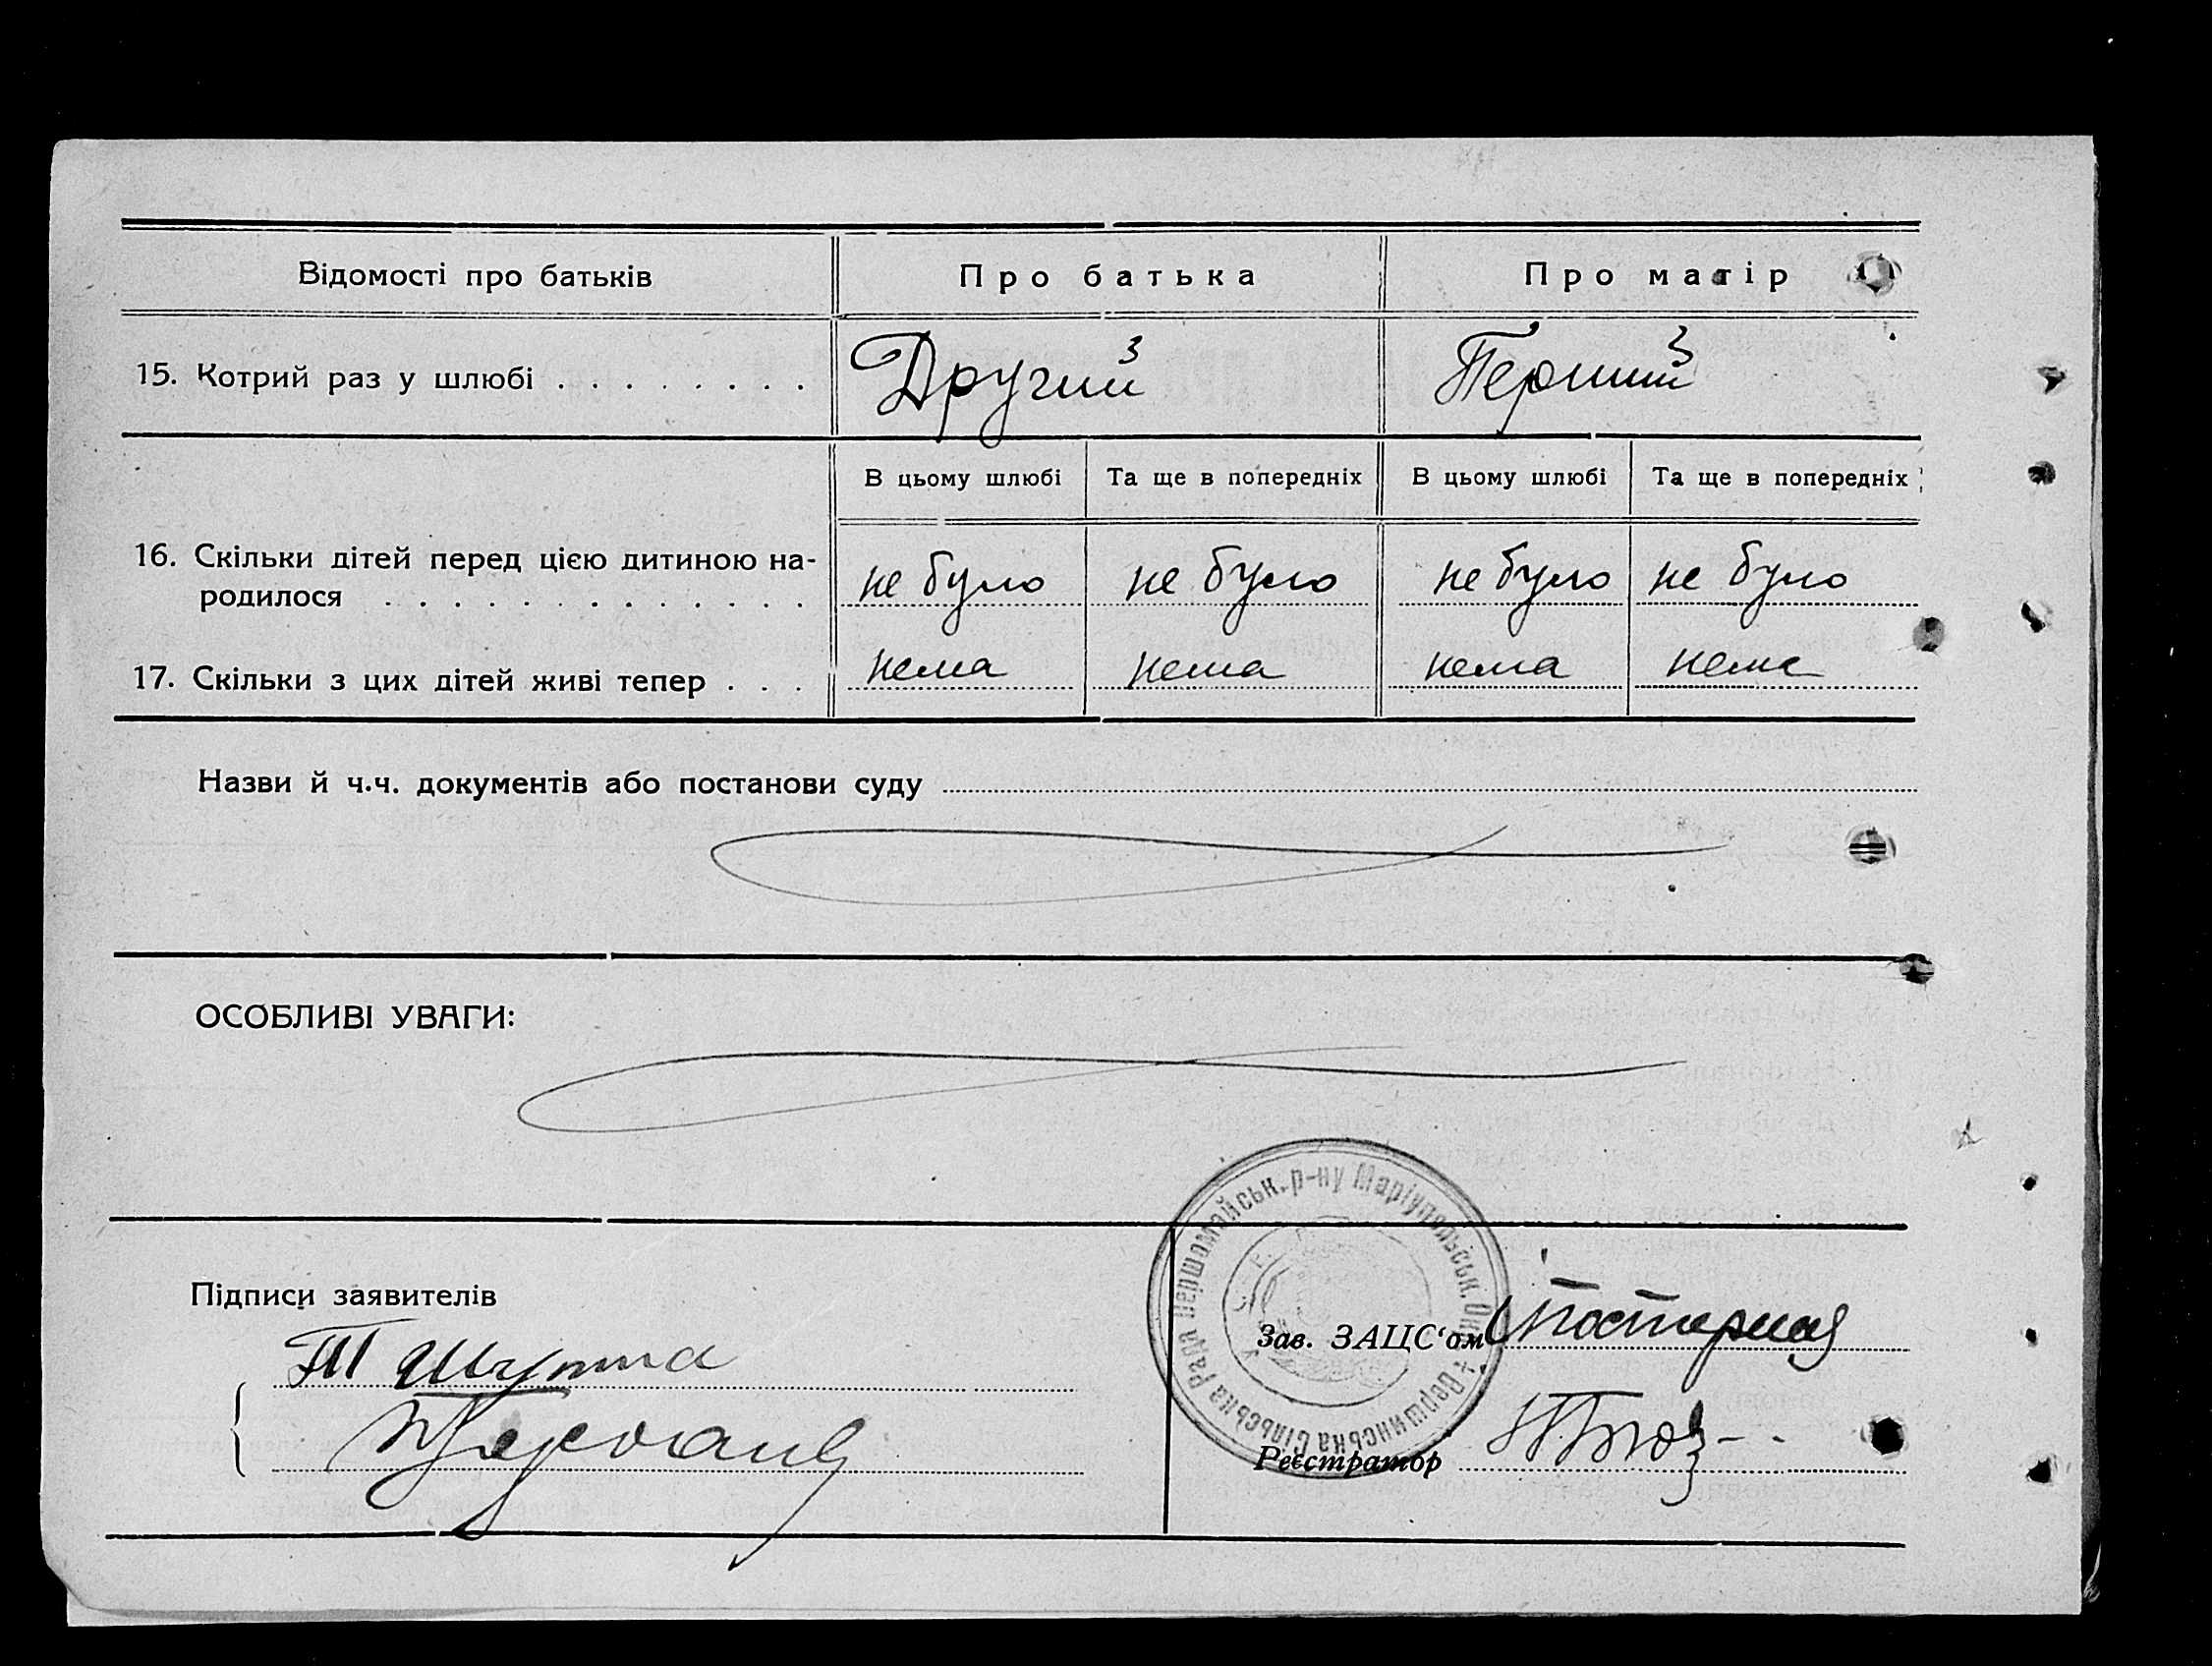 Відомості про батьків
Про батька
Про матір
15. Котрий раз у шлюбі . . . . . . . .
Другий
Перший
В цьому шлюбі
Та ще в попередніх
В цьому шлюбі
Та ще в попередніх
16. Скільки дітей перед цією дитиною на-
родилося . . . . . . . . . . . . .
не було
не було
не було
не було
17. Скільки з цих дітей живі тепер . . .
нема
нема
нема
нема
Назви й ч.ч. документів або постанови суду
ОСОБЛИВІ УВАГИ:
Вершинська Сільська Рада Першомайськ. р-ну Маріупольськ. Окр.
Підписи заявителів
Зав. ЗАЦС‘ом
Реєстратор